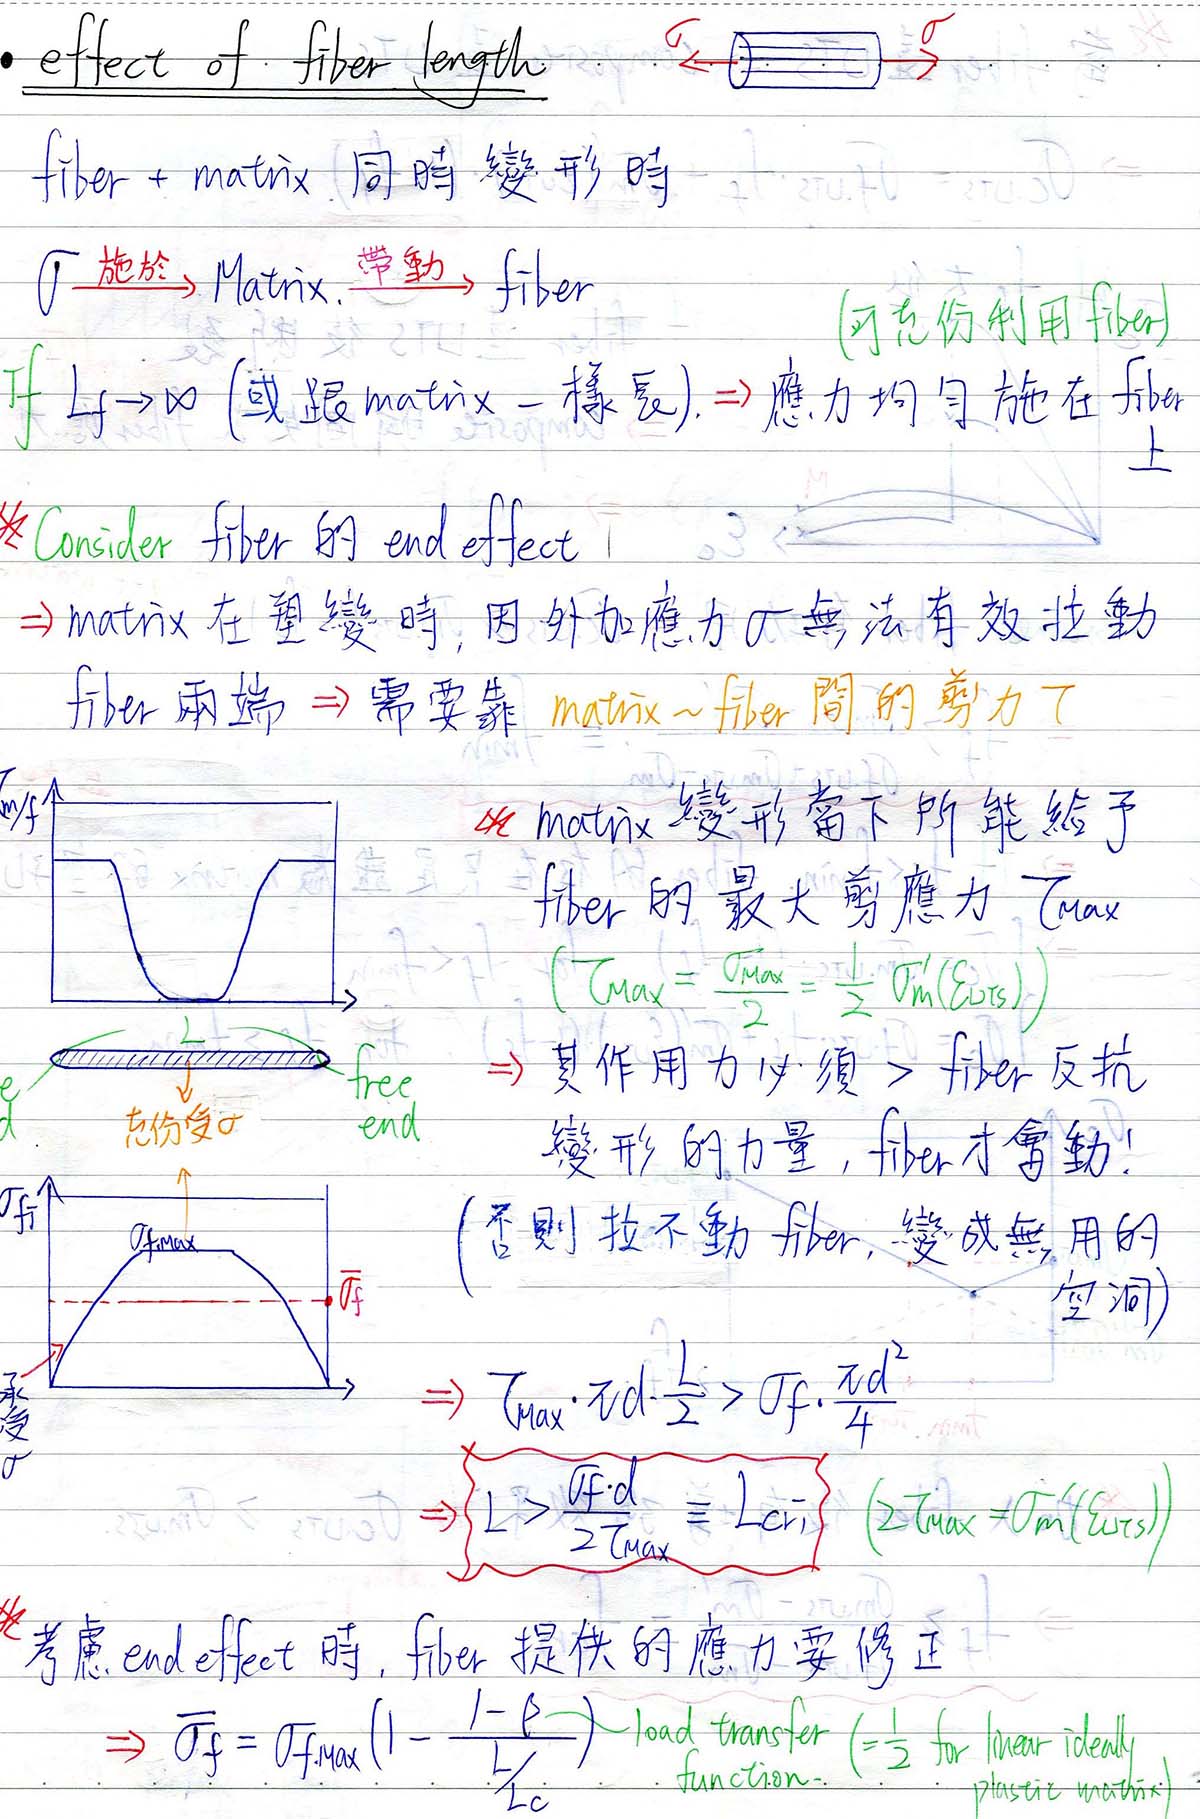 • effect of fiber length
σ σ
fiber + matrix 同時變形時
σ 施於→ Matrix. 帶動→ fiber
(可充份利用fiber)
If Lf→∞ (或跟matrix一樣長). ⇒ 應力均勻施在fiber
上
※ Consider fiber 的 end effect
⇒ matrix 在塑變時, 因外加應力σ無法有效拉動
fiber 兩端 ⇒ 需要靠 matrix~fiber 間的剪力τ
τm/f
※ matrix 變形當下所能給予
fiber 的最大剪應力 τMax
(τMax = σMax/2 = 1/2 σm'(εUTS))
L
free
end
充份受σ
⇒ 其作用力必須 > fiber 反抗
變形的力量, fiber才會動!
(否則拉不動 fiber, 變成無用的
空洞)
σf
σf,Max
σ̄f
承受σ
⇒ τMax · πd · L/2 > σf · πd²/4
⇒ L > σf·d / 2τMax ≡ Lcri (2τMax = σm'(εUTS))
※ 考慮 end effect 時, fiber 提供的應力要修正
⇒ σ̄f = σf,Max (1 - (1-β)/(L/Lc)) load transfer function. (=1/2 for linear ideally
plastic matrix)